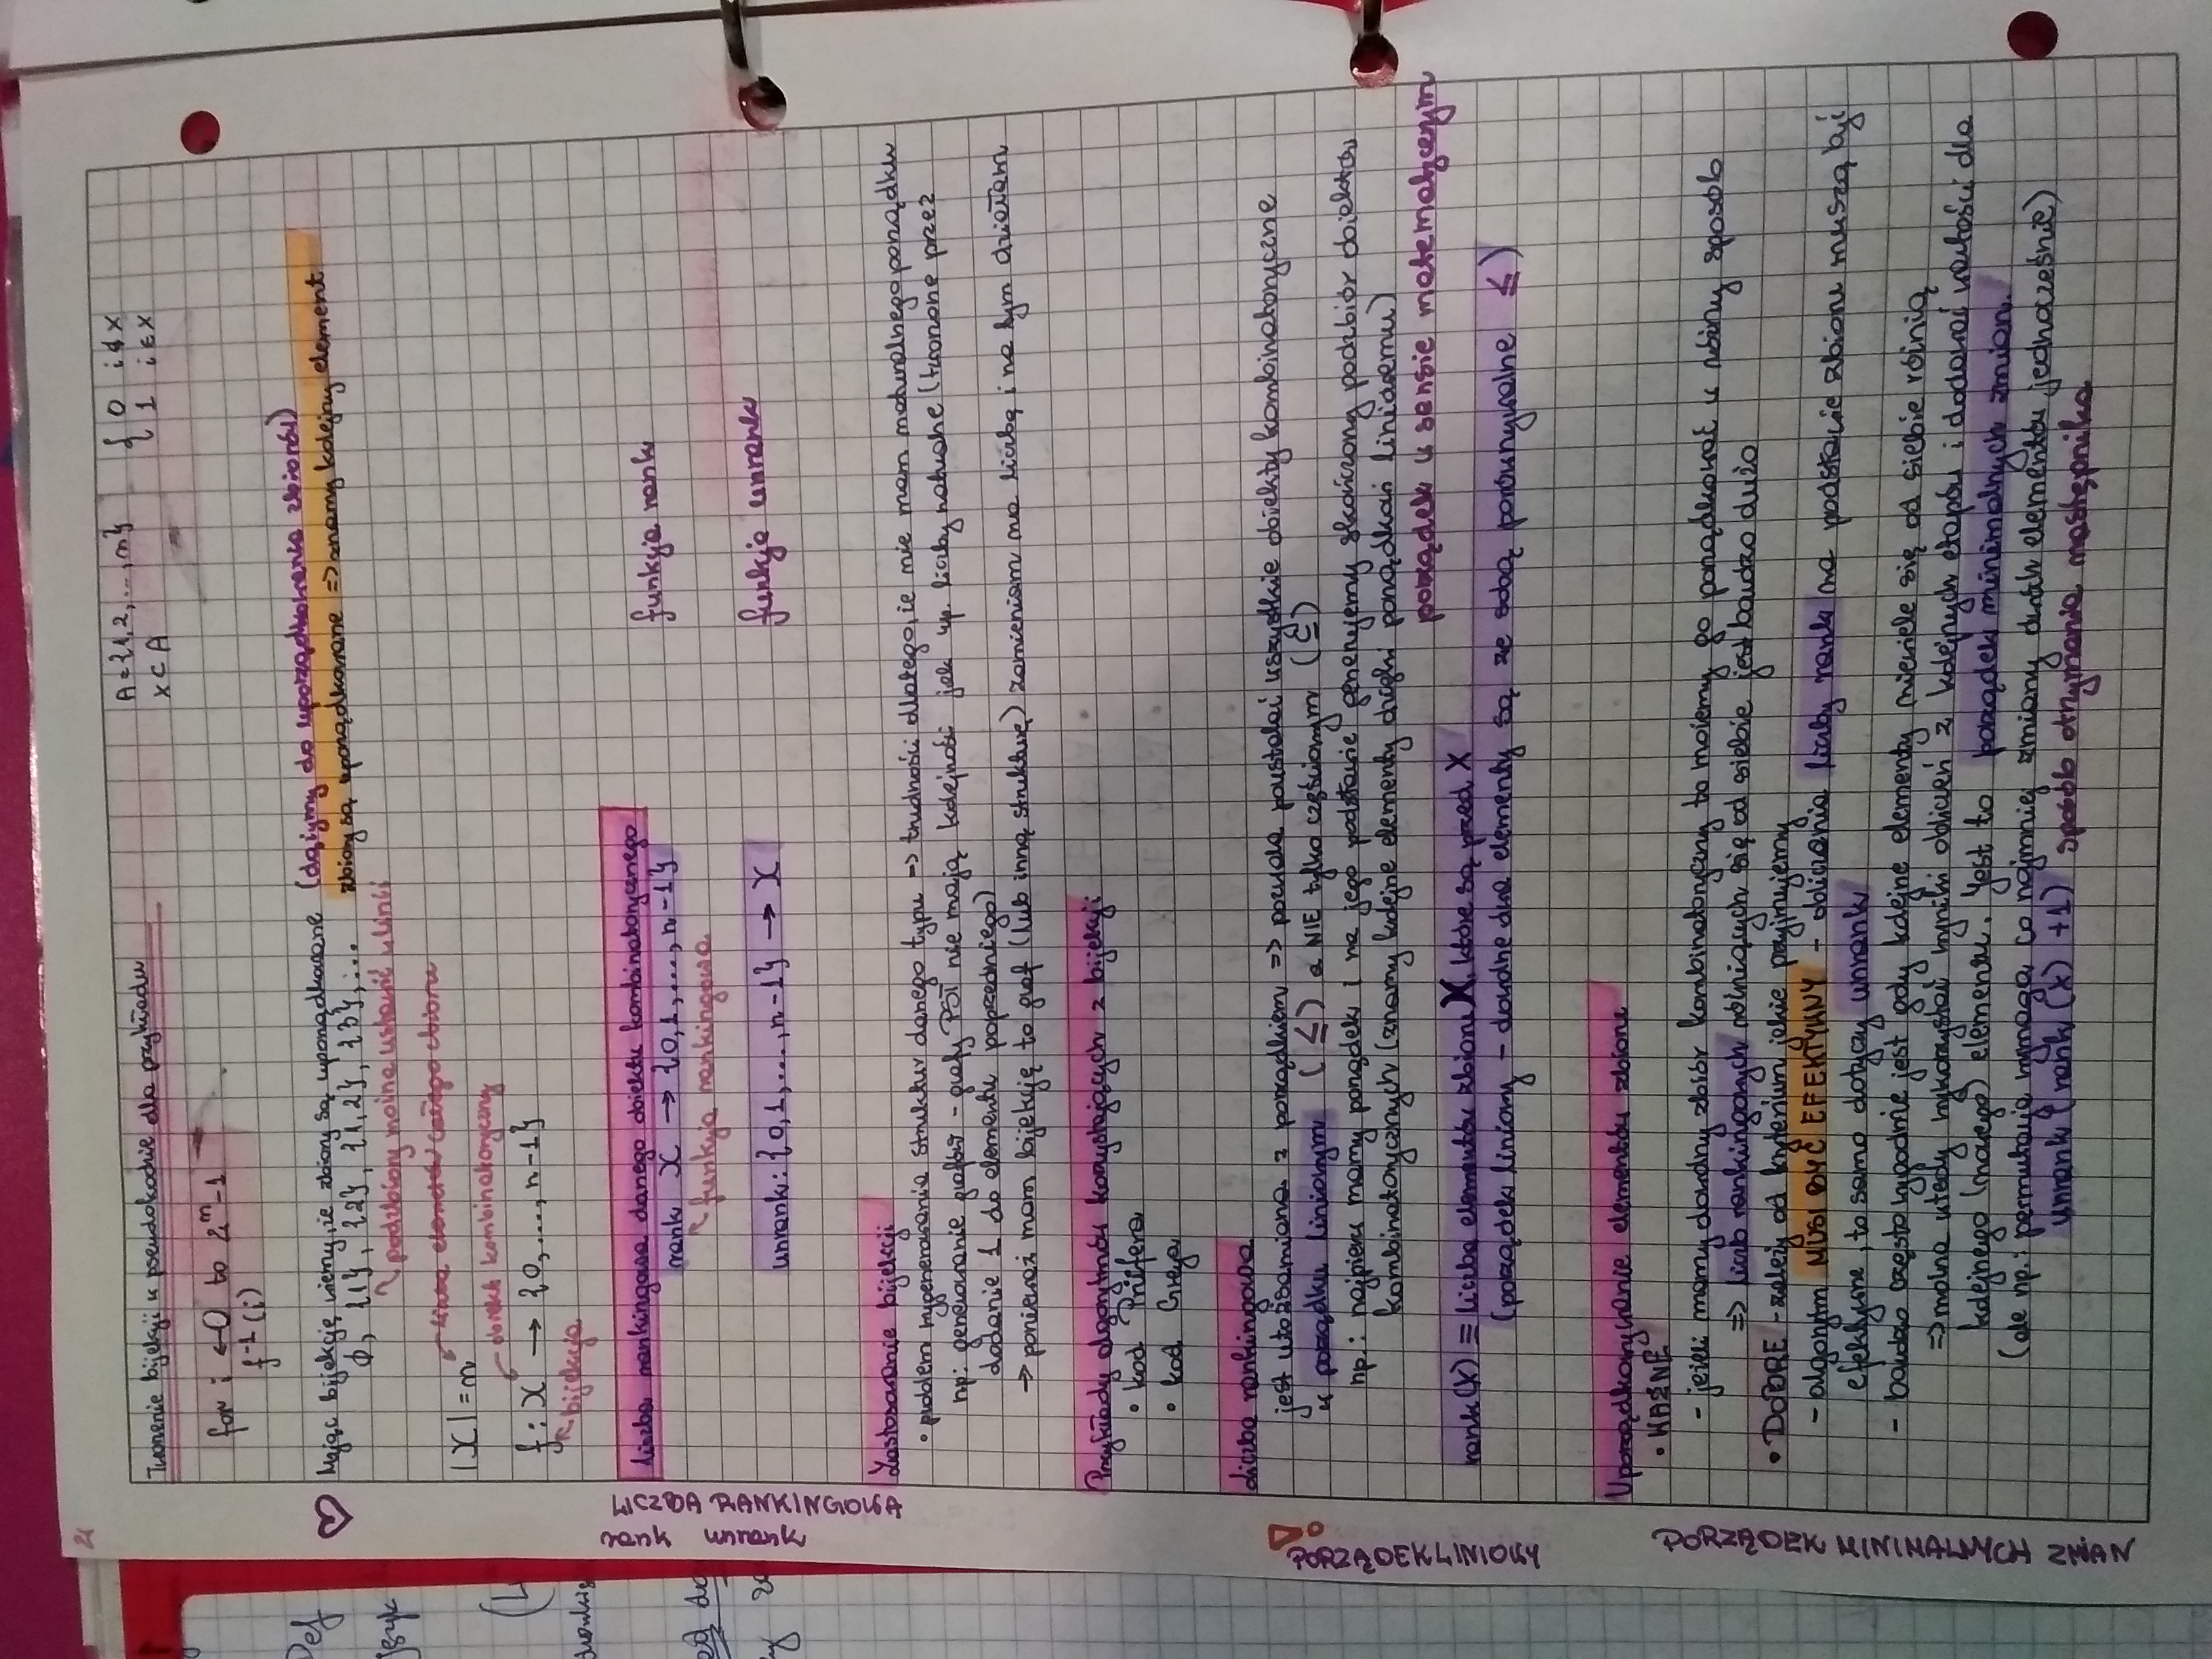 2
Tworzenie bijekcji w pseudokodzie dla przykładu
A = {1,2,...,n}
x ⊂ A
{ 0 i∉x
1 i∈x
for i ← 0 to 2^n-1
f^-1 (i)
Mając bijekcję wiemy, że zbiory są uporządkowane (dążymy do uporządkowania zbiorów)
∅, {1}, {2}, {1,2}, {3},... zbiory są uporządkowane => znamy kolejny element
podzbiory można ustawić w linii
liczba elementów całego zbioru
|X| = n
obiekt kombinatoryczny
f: X → {0,..., n-1}
bijekcja
LICZBA RANKINGOWA
rank unrank
Liczba rankingowa danego obiektu kombinatorycznego
rank X → {0,1,..., n-1}
funkcja rank
funkcja rankingowa
unrank: {0,1,..., n-1} → X
funkcja unrank
Zastosowanie bijekcji
• problem wygenerowania struktur danego typu => trudności dlatego, że nie mam naturalnego porządku
np: generowanie grafów - grafy PST nie mają kolejności jak np. liczby naturalne (tworzone przez
dodanie 1 do elementu poprzedniego)
→ ponieważ mam bijekcję to graf (lub inną strukturę) zamieniam na liczbę i na tym działam
Przykłady algorytmów korzystających z bijekcji
• kod Prüfera
• kod Greya
Liczba rankingowa
jest utożsamiana z porządkiem => pozwala poustalać wszystkie obiekty kombinatoryczne
w porządku liniowym (≤) a NIE tylko częściowym (⊆)
np.: najpierw mamy porządek i na jego podstawie generujemy skończony podzbiór obiektów
kombinatorycznych (znamy kolejne elementy dzięki porządkowi liniowemu)
porządek w sensie matematycznym
PORZĄDEK LINIOWY
rank(X) ≡ liczba elementów zbioru X, które są przed X
(porządek liniowy - dowolne dwa elementy są ze sobą porównywalne ≤)
Uporządkowywanie elementów zbioru
• WAŻNE
- jeżeli mamy dowolny zbiór kombinatoryczny to możemy go porządkować w różny sposób
=> liczb rankingowych różniących się od siebie jest bardzo dużo
• DOBRE - zależy od kryterium jakie przyjmujemy
- algorytm MUSI BYĆ EFEKTYWNY - obliczania liczby rank na podstawie zbioru muszą być
efektywne, to samo dotyczy unrank
- bardzo często wygodnie jest gdy kolejne elementy niewiele się od siebie różnią
=> można wtedy wykorzystać wyniki obliczeń z kolejnych etapów i dodawać wartości dla
kolejnego (nowego) elementu. Jest to porządek minimalnych zmian.
(ale np.: permutacja wymaga co najmniej zmiany dwóch elementów jednocześnie)
unrank (rank (X) +1) sposób otrzymania następnika
PORZĄDEK MINIMALNYCH ZMIAN